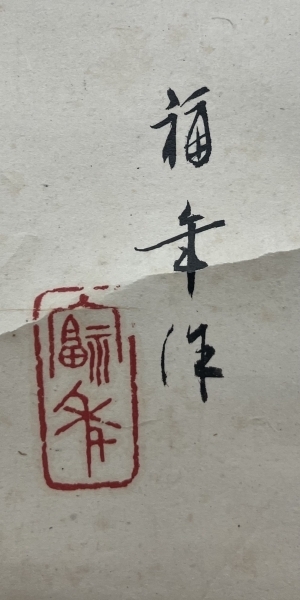 福年作
福年